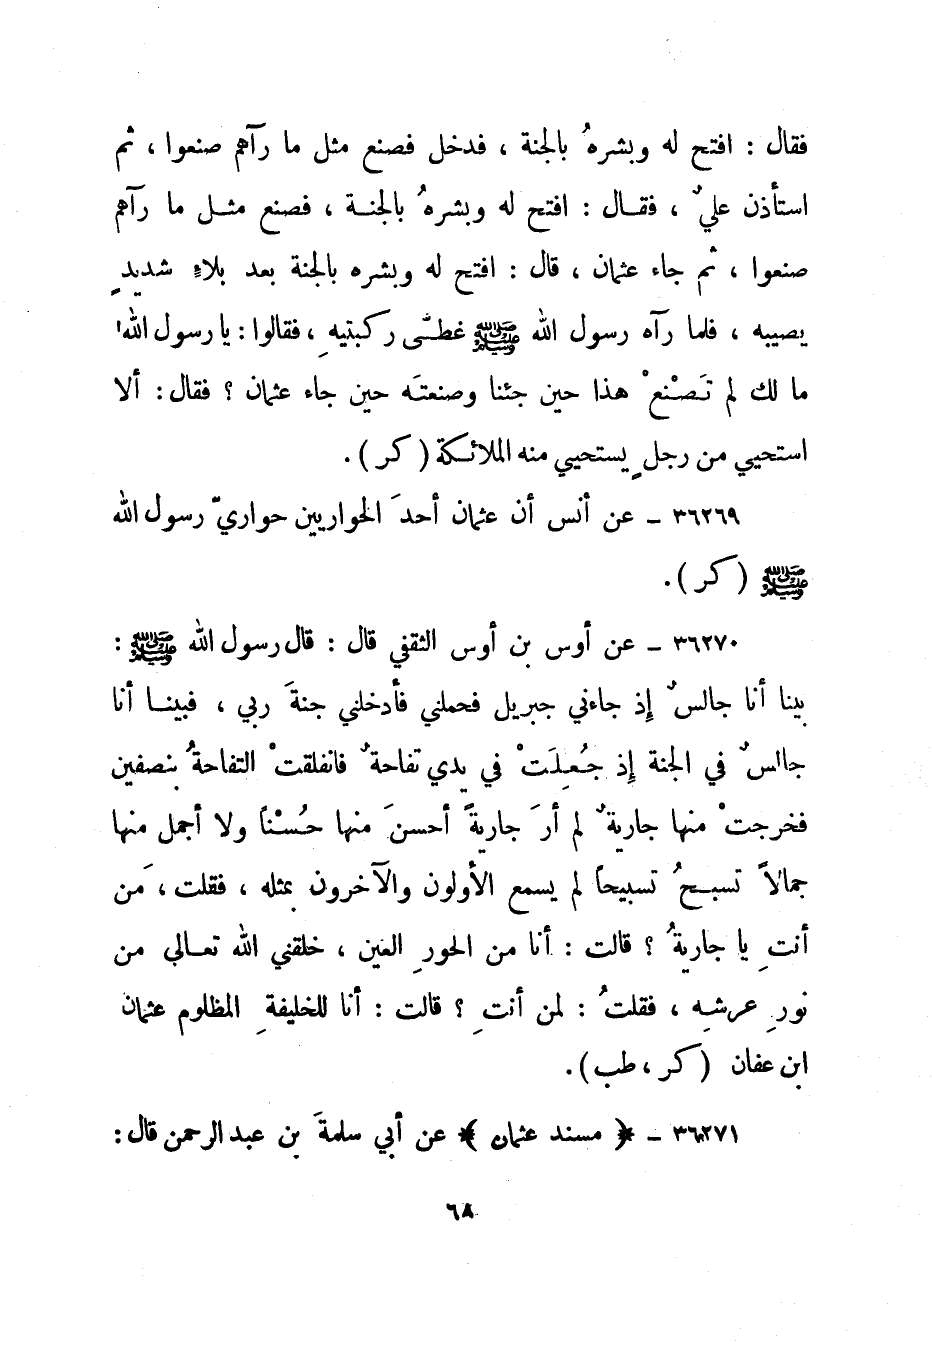 فقال : افتح له وبشرهُ بالجنة ، فدخل فصنع مثل ما رآهم صنعوا ، ثم
استأذن عليٌ ، فقال : افتح له وبشرهُ بالجنة ، فصنع مثل ما رآهم
صنعوا ، ثم جاء عثمان ، قال : افتح له وبشره بالجنة بعد بلاءٍ شديدٍ
يصيبه ، فلما رآه رسول الله ﷺ غطى ركبتيهِ ، فقالوا : يا رسول الله!
ما لك لم تَصْنعْ هذا حين جئنا وصنعتَه حين جاء عثمان ؟ فقال : ألا
استحيي من رجلٍ يستحيي منه الملائكة ( كر ) .
٣٦٢٦٩ ـ عن أنس أن عثمان أحدَ الحواريين حواريّ رسول الله
ﷺ ( كر ) .
٣٦٢٧٠ ـ عن أوس بن أوس الثقفي قال : قال رسول الله ﷺ :
بينا أنا جالسٌ إذ جاءني جبريل فحملني فأدخلني جنةَ ربي ، فبينا أنا
جالسٌ في الجنة إذ جُعِلَتْ في يدي تفاحةٌ فانفلقتْ التفاحةُ بنصفين
فخرجتْ منها جاريةٌ لم أرَ جاريةً أحسنَ منها حُسْناً ولا أجمل منها
جمالاً تسبحُ تسبيحاً لم يسمع الأولون والآخرون بمثله ، فقلت ، مَن
أنتِ يا جاريةُ ؟ قالت : أنا من الحورِ العين ، خلقني الله تعالى من
نورِ عرشِه ، فقلتُ : لمن أنتِ ؟ قالت : أنا للخليفةِ المظلوم عثمان
ابن عفان ( كر ، طب ) .
٣٦٢٧١ ـ ﴿ مسند عثمان ﴾ عن أبي سلمةَ بن عبد الرحمن قال :
٦٨